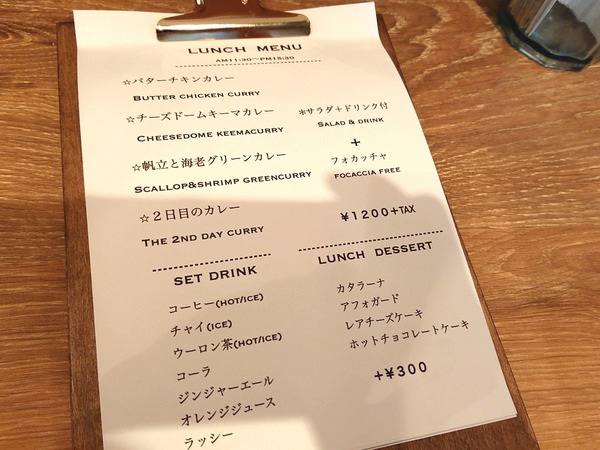 LUNCH MENU
AM11:30～PM15:30
☆バターチキンカレー
BUTTER CHICKEN CURRY
☆チーズドームキーマカレー
CHEESEDOME KEEMACURRY
☆帆立と海老グリーンカレー
SCALLOP&SHRIMP GREENCURRY
☆２日目のカレー
THE 2ND DAY CURRY
＊サラダ＋ドリンク付
SALAD & DRINK
+
フォカッチャ
FOCACCIA FREE
¥1200+TAX
SET DRINK
コーヒー(HOT/ICE)
チャイ(ICE)
ウーロン茶(HOT/ICE)
コーラ
ジンジャーエール
オレンジジュース
ラッシー
LUNCH DESSERT
カタラーナ
アフォガード
レアチーズケーキ
ホットチョコレートケーキ
+¥300